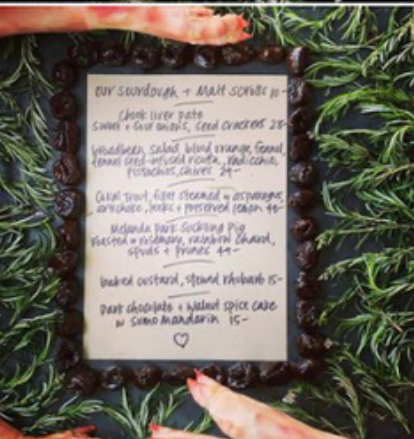 our sourdough + malt scrolls 10-
Chook liver pate
sweet + sour onions, seed crackers 25-
broadbean salad, blood orange, fennel,
fennel seed-infused ricotta, radicchio,
pistachios, chives 24-
trout, fillet steamed w asparagus,
artichoke, leeks + preserved lemon 40-
Melanda Park suckling pig
roasted w rosemary, rainbow chard,
spuds + prunes 44-
baked custard, stewed rhubarb 15-
Dark chocolate + walnut spice cake
w sumo mandarin 15-